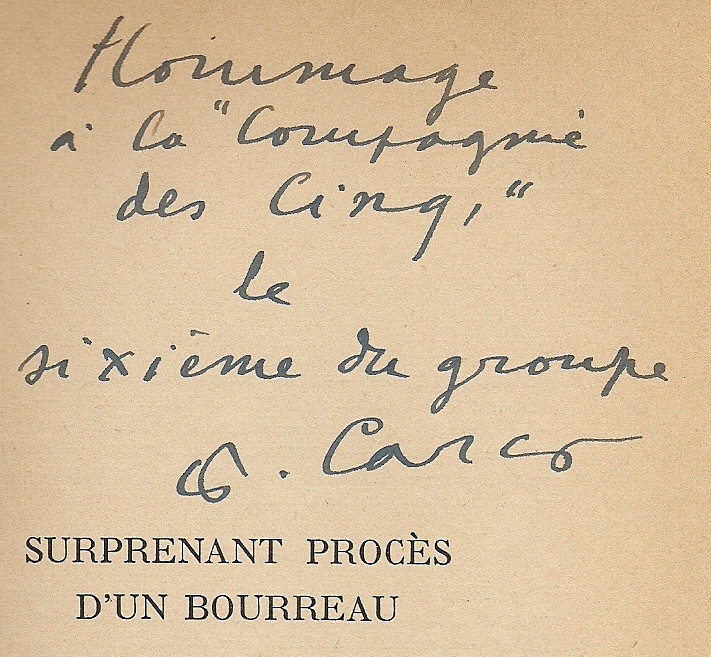 Hommage
à la "Compagnie
des Cinq,"
le
sixième du groupe
F. Carco
SURPRENANT PROCÈS
D'UN BOURREAU